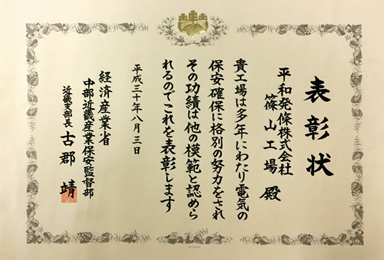 表彰状
平和発條株式会社
篠山工場 殿
貴工場は多年にわたり電気の
保安確保に格別の努力をされ
その功績は他の模範と認めら
れるのでこれを表彰します
平成三十年八月三日
経済産業省
中部近畿産業保安監督部
近畿支部長 古郡 靖